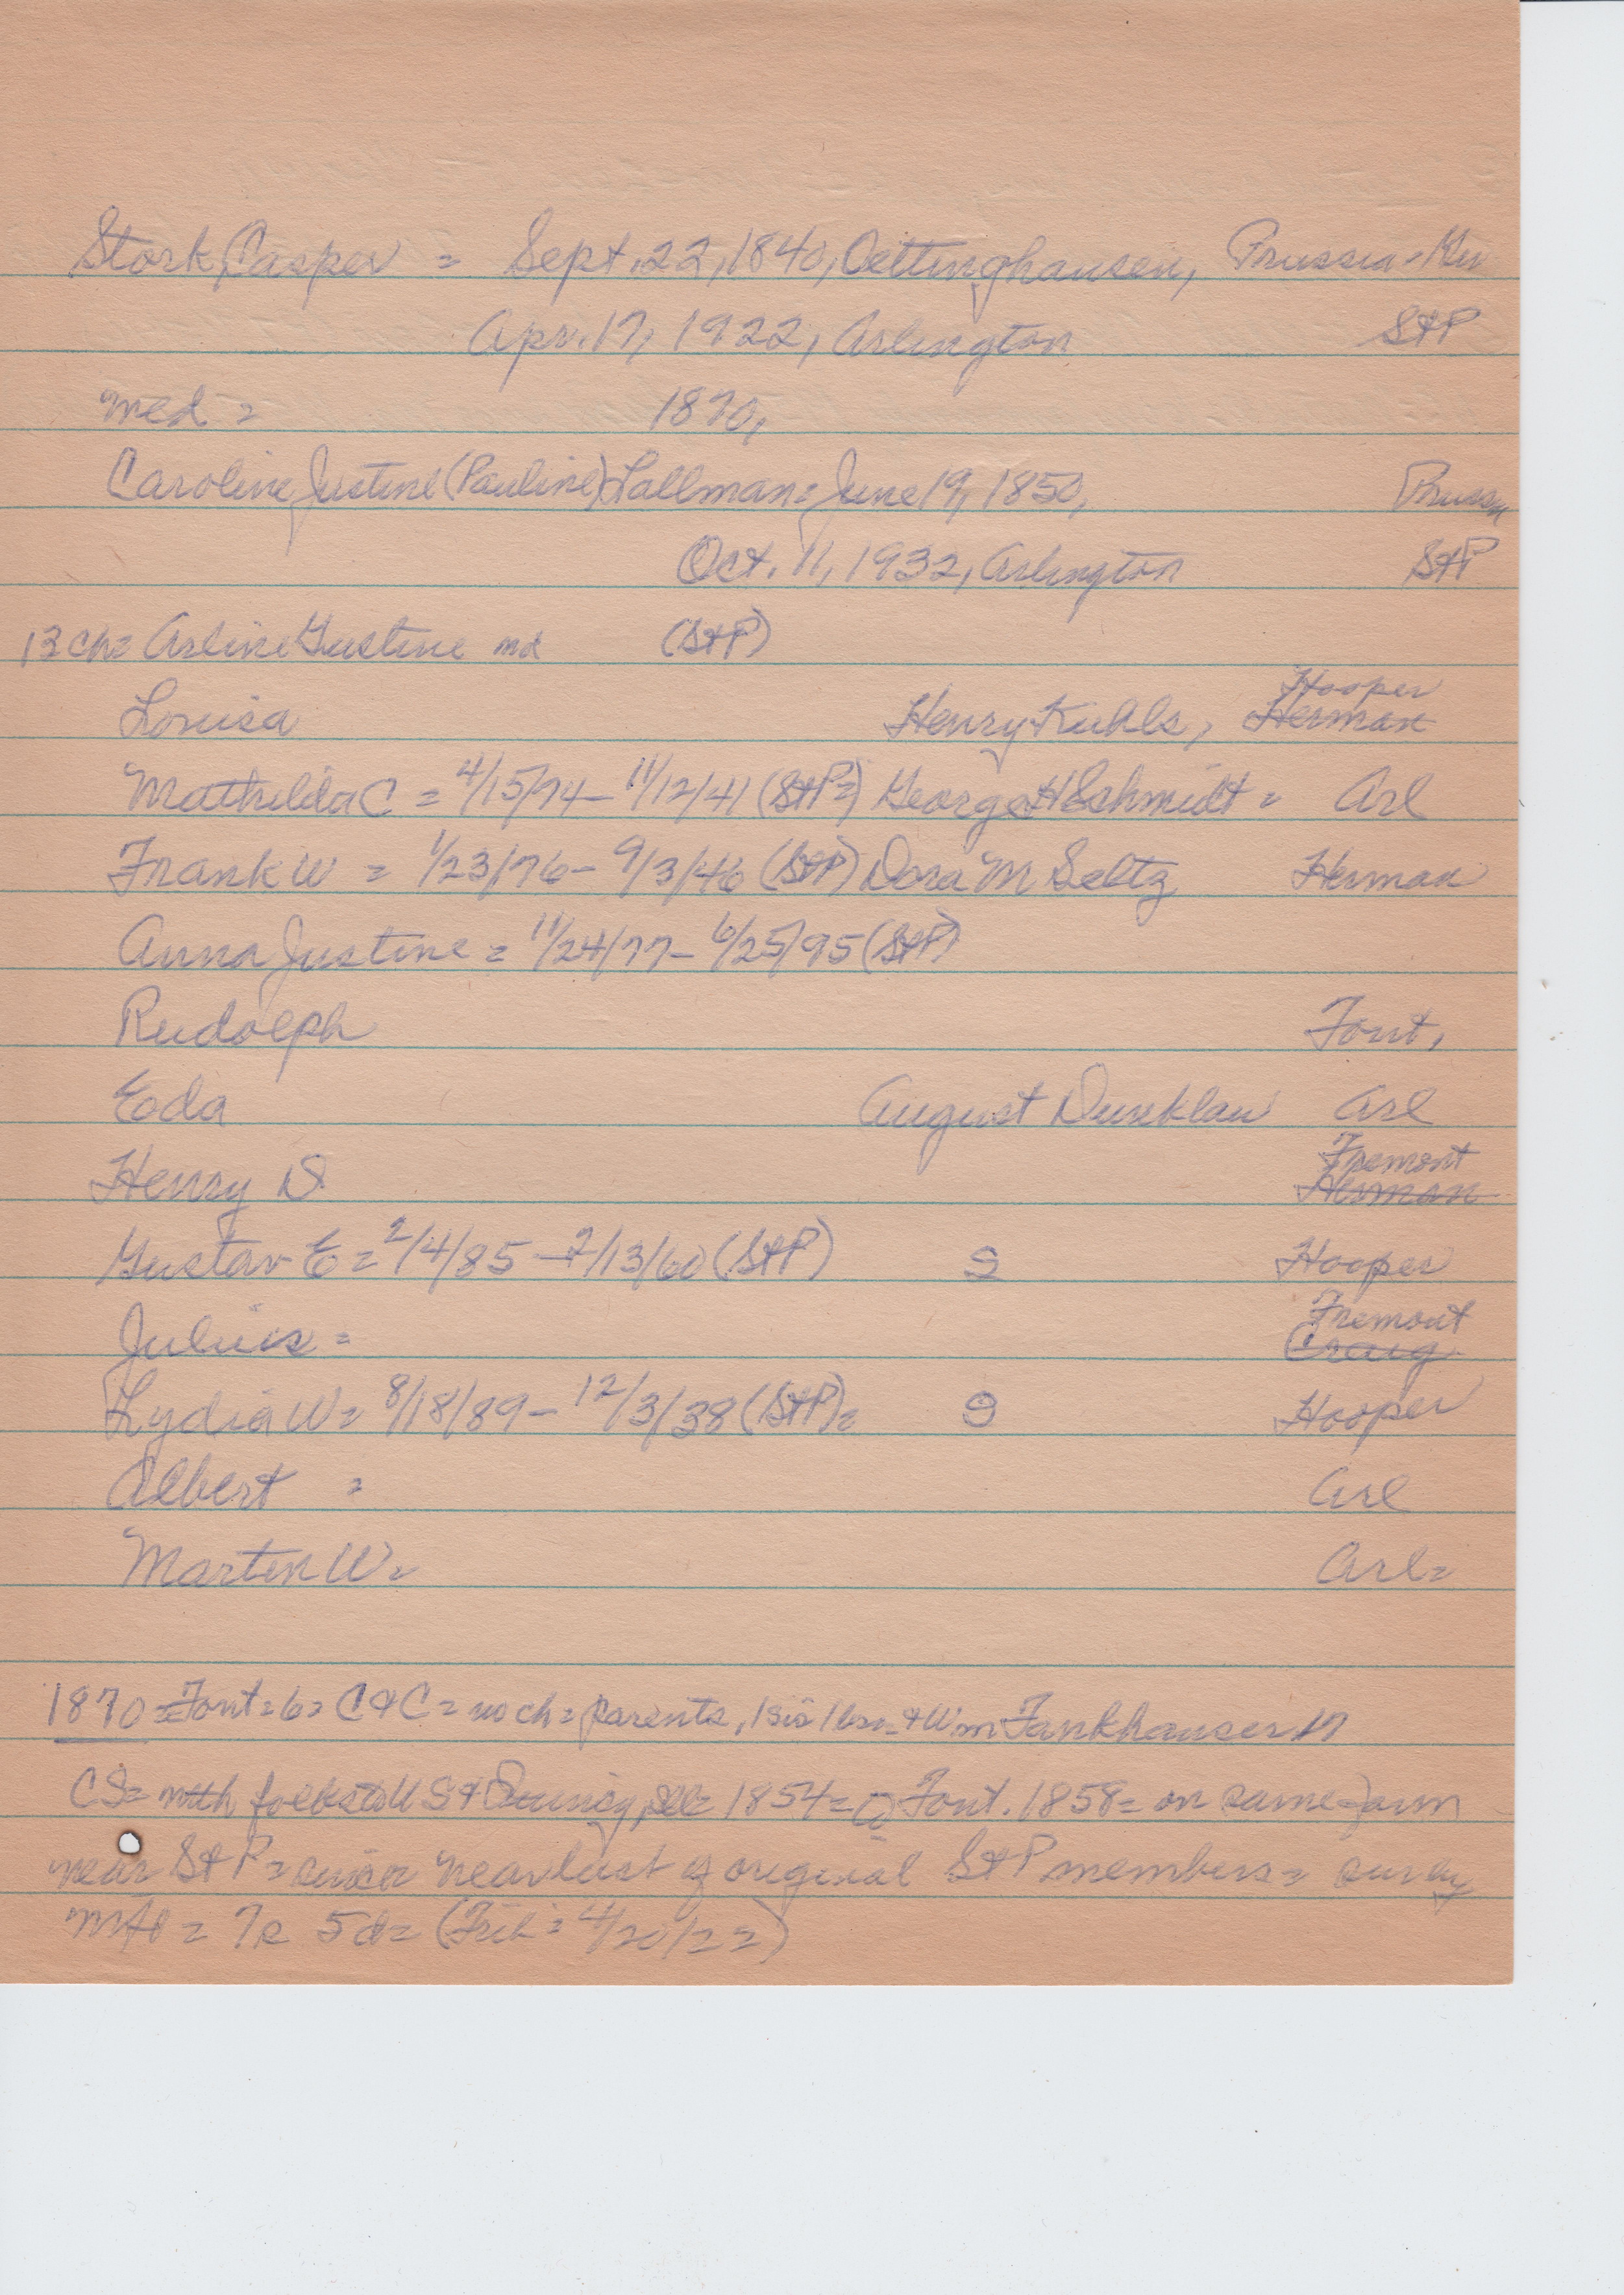 Stork, Casper = Sept. 22, 1840, Oettinghausen, Prussia
Apr. 17, 1922, Arlington St P
med = 1870,
Caroline Justine (Pauline) Lallman = June 19, 1850,
Oct. 11, 1932, Arlington St P
13 ch = Arline Gustine md (St P)
Hooper
Louisa Henry Kuhls, Herman
Mathilda C = 4/15/74 - 11/12/41 (St P =) George H Schmidt = Arl
Frank W = 1/23/76 - 9/3/46 (St P) Dora M Seltz Herman
Anna Justine = 11/24/77 - 6/25/95 (St P)
Rudolph Font,
Eda August Dunklau Arl
Fremont
Henry D Herman
Gustav E = 2/4/85 - 2/13/60 (St P) S Hooper
Fremont
Julius = Craig
Lydia W = 8/18/89 - 12/3/38 (St P) = S Hooper
Albert = Arl
Martin W = Arl =
1870 = Font = 6 = C & C = no ch = parents, 1 sis 1 bro - & Wm Fankhauser 17
CS = folks to U S & 1854 = Font. 1858 = on same farm
near St P = near last of original St P members =
= 7 s 5 d = (Trib = 4/20/22)